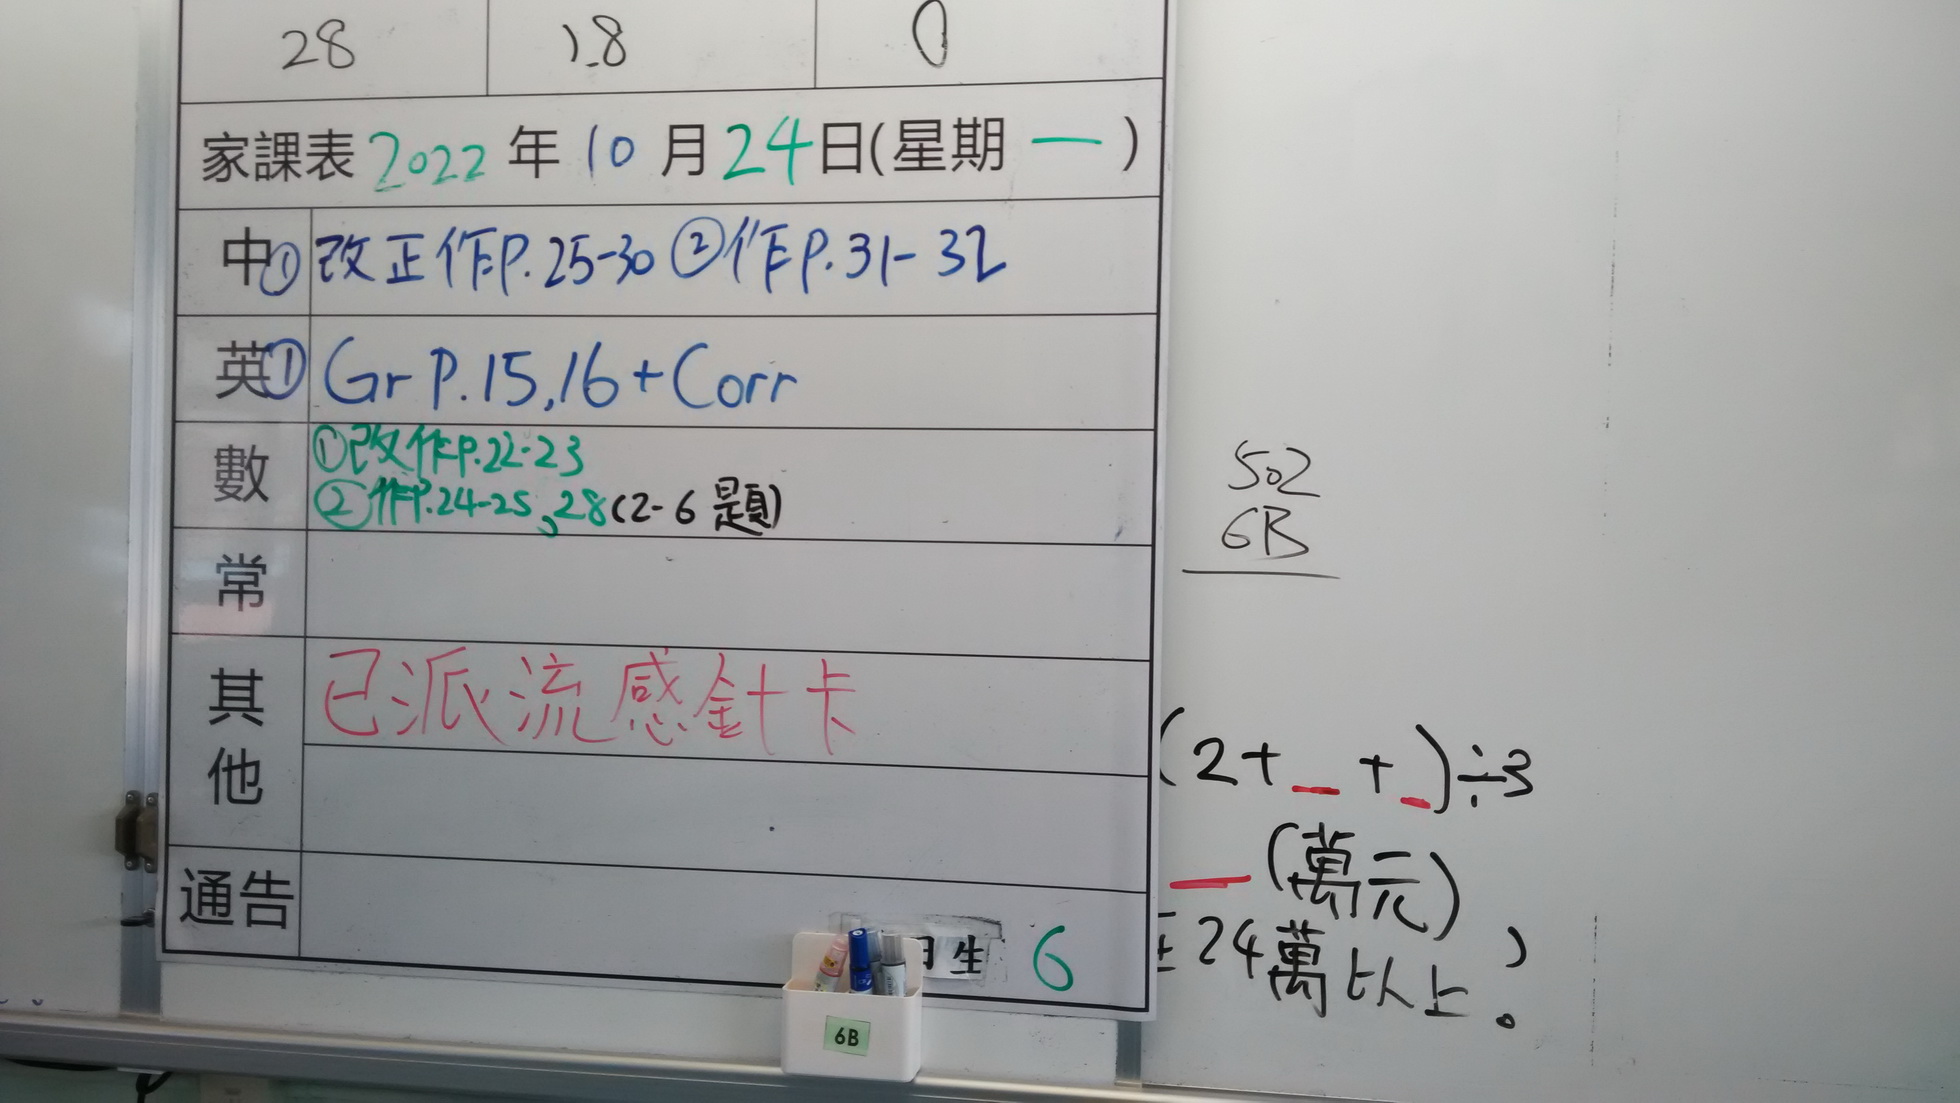 28 28 0
家課表 2022 年 10 月 24 日(星期 一 )
中 ① 改正作P.25-30 ②作P.31-32
英 ① Gr P.15,16+Corr
數 ①改作P.22-23
②作P.24-25、28(2-6題)
常
其他 已派流感針卡
通告
日生 6
6B
502
6B
(2+_+_)÷3
_(萬元)
在24萬以上。